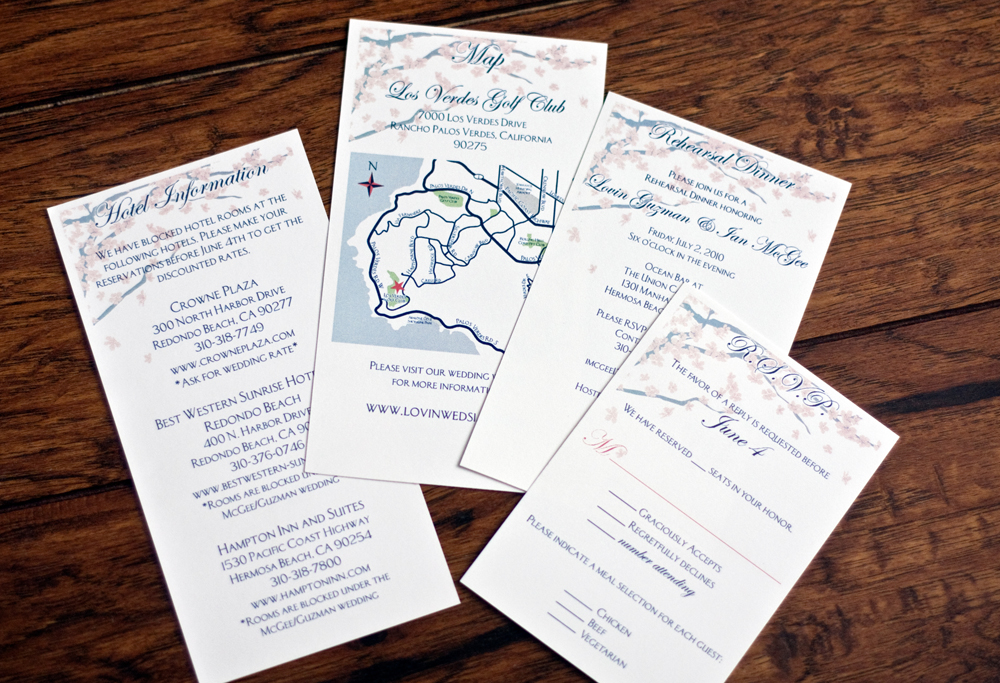 Hotel Information
We have blocked hotel rooms at the
following hotels. Please make your
reservations before June 4th to get the
discounted rates.
Crowne Plaza
300 North Harbor Drive
Redondo Beach, CA 90277
310-318-7749
www.crowneplaza.com
*Ask for wedding rate*
Best Western Sunrise Hot
Redondo Beach
400 N. Harbor Drive
Redondo Beach, CA 90
310-376-0746
www.bestwestern-sun
*Rooms are blocked un
McGee/Guzman wedding
Hampton Inn and Suites
1530 Pacific Coast Highway
Hermosa Beach, CA 90254
310-318-7800
www.hamptoninn.com
*Rooms are blocked under the
McGee/Guzman wedding
Map
Los Verdes Golf Club
7000 Los Verdes Drive
Rancho Palos Verdes, California
90275
N
Palos Verdes Dr N
Palos Verdes
Please visit our wedding
for more informat
www.lovinweds
Rehearsal Dinner
Please join us for a
Rehearsal Dinner honoring
Lovin Guzman & Ian McGee
Friday, July 2, 2010
Six o'clock in the evening
Ocean Bar at
The Union C
1301 Manha
Hermosa Beach
Please RSVP
Cont
imcgee
Host
R.S.V.P.
The favor of a reply is requested before
June 4
We have reserved __ seats in your honor.
M
___ Graciously Accepts
___ Regretfully Declines
___ number attending
Please indicate a meal selection for each guest:
___ Chicken
___ Beef
___ Vegetarian